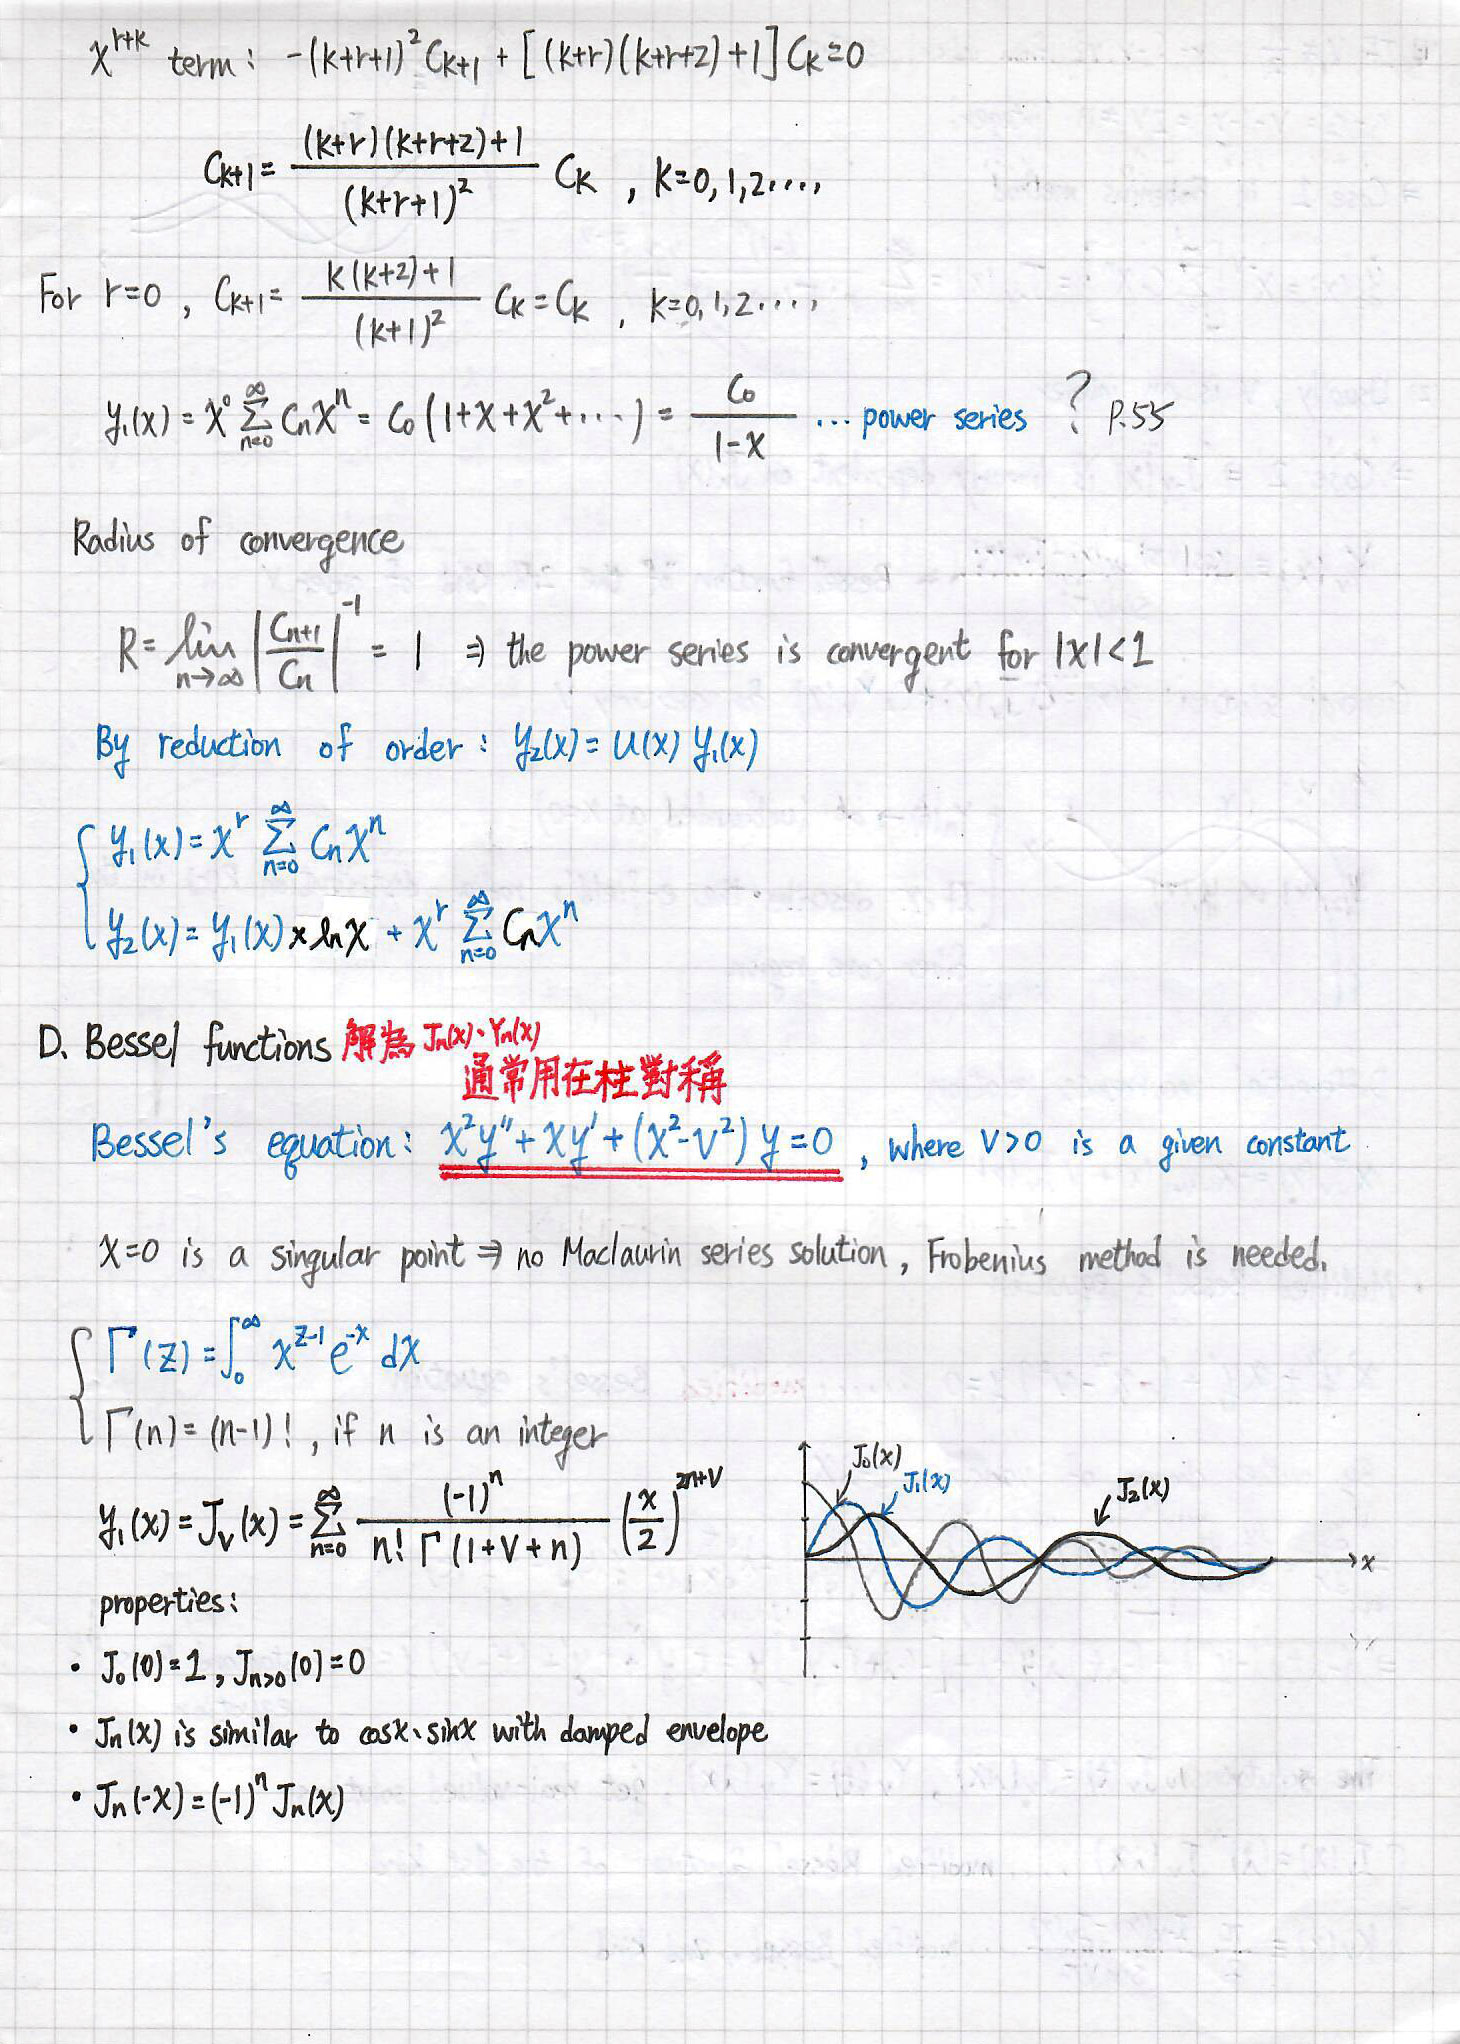 x^{r+k} term: -(k+r+1)^2 C_{k+1} + [(k+r)(k+r+2)+1] C_k = 0
C_{k+1} = \frac{(k+r)(k+r+2)+1}{(k+r+1)^2} C_k , k=0,1,2....,
For r=0 , C_{k+1} = \frac{k(k+2)+1}{(k+1)^2} C_k = C_k , k=0,1,2....,
y_1(x) = x^0 \sum_{n=0}^{∞} C_n x^n = C_0 (1+x+x^2+....) = \frac{C_0}{1-x} ... power series ? P.55
Radius of convergence
R = \lim_{n→∞} |\frac{C_{n+1}}{C_n}|^{-1} = 1 ⇒ the power series is convergent for |x|<1
By reduction of order : y_2(x) = u(x) y_1(x)
y_1(x) = x^r \sum_{n=0}^{∞} C_n x^n
y_2(x) = y_1(x) × ln x + x^r \sum_{n=0}^{∞} C_n x^n
D. Bessel functions 解為 J_n(x)、Y_n(x)
通常用在柱對稱
Bessel's equation: x^2y''+xy'+(x^2-v^2)y=0 , where v>0 is a given constant
x=0 is a singular point ⇒ no Maclaurin series solution, Frobenius method is needed.
Γ(z) = ∫_0^∞ x^{z-1} e^{-x} dx
Γ(n) = (n-1)! , if n is an integer
y_1(x) = J_v(x) = \sum_{n=0}^{∞} \frac{(-1)^n}{n! Γ(1+v+n)} (\frac{x}{2})^{2n+v}
J_0(x)
J_1(x)
J_2(x)
x
properties:
• J_0(0)=1 , J_{n>0}(0)=0
• J_n(x) is similar to cosx、sinx with damped envelope
• J_n(-x) = (-1)^n J_n(x)